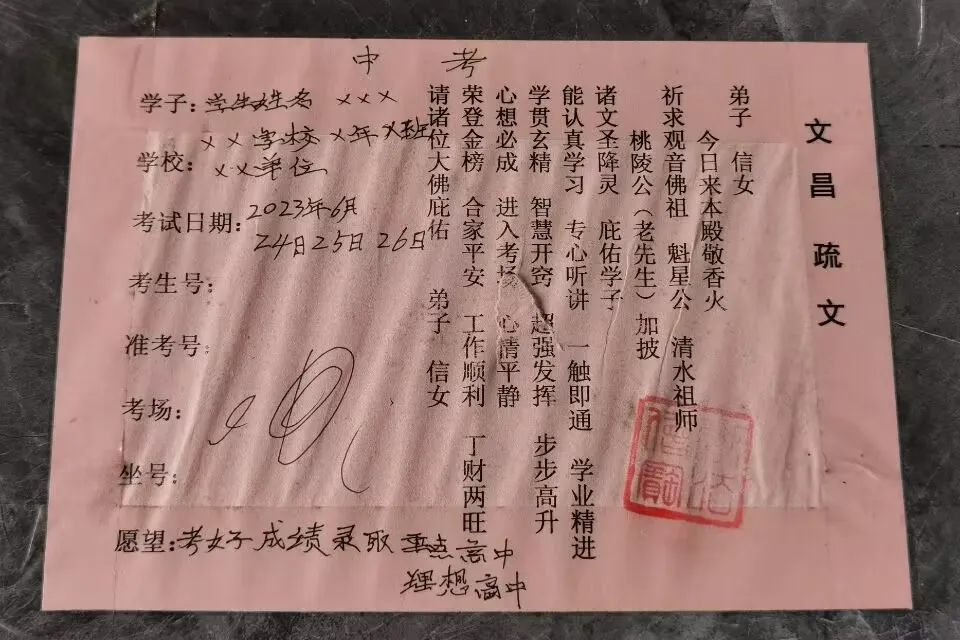 文昌疏文
弟子 信女
今日来本殿敬香火
祈求观音佛祖 魁星公 清水祖师
桃陵公（老先生）加披
诸文圣降灵 庇佑学子
能认真学习 专心听讲 一触即通 学业精进
学贯玄精 智慧开窍 超强发挥 步步高升
心想必成 进入考场 心情平静
荣登金榜 合家平安 工作顺利 丁财两旺
请诸位大佛庇佑 弟子 信女
中考
学子：学生姓名 ×××
××学校×年×班
学校：××单位
考试日期：2023年6月
24日25日26日
考生号：
准考号：
考场：
坐号：
愿望：考好成绩录取重点高中
理想高中